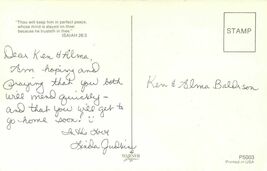 "Thou wilt keep him in perfect peace,
whose mind is stayed on thee:
because he trusteth in thee."
ISAIAH 26:3
STAMP
Dear Ken & Alma,
Am hoping and
praying that you both
will mend quickly -
and that you will get to
go home soon!
In His love
Linda Judkins
Ken & Alma Baldrson
WARNER
P5003
Printed in USA